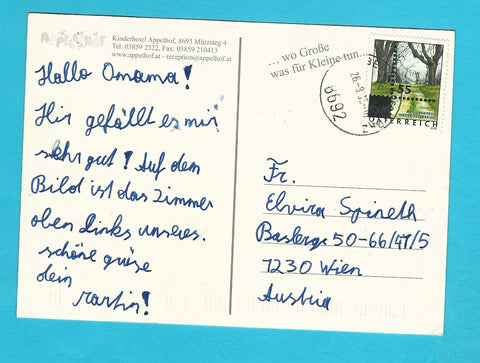 Kinderhotel Appelhof, 8693 Mürzsteg 4
Tel: 03859 2322, Fax: 03859 210413
www.appelhof.at - reception@appelhof.at
... wo Große
was für Kleine tun...
8692
55
ÖSTERREICH
Hallo Omama!
Hir gefällt es mir
sehr gut! Auf dem
Bild ist das Zimmer
oben links unseres.
schöne grüse
dein
martin!
Fr.
Elvira Spineth
50-66/47/5
1230 Wien
Austria